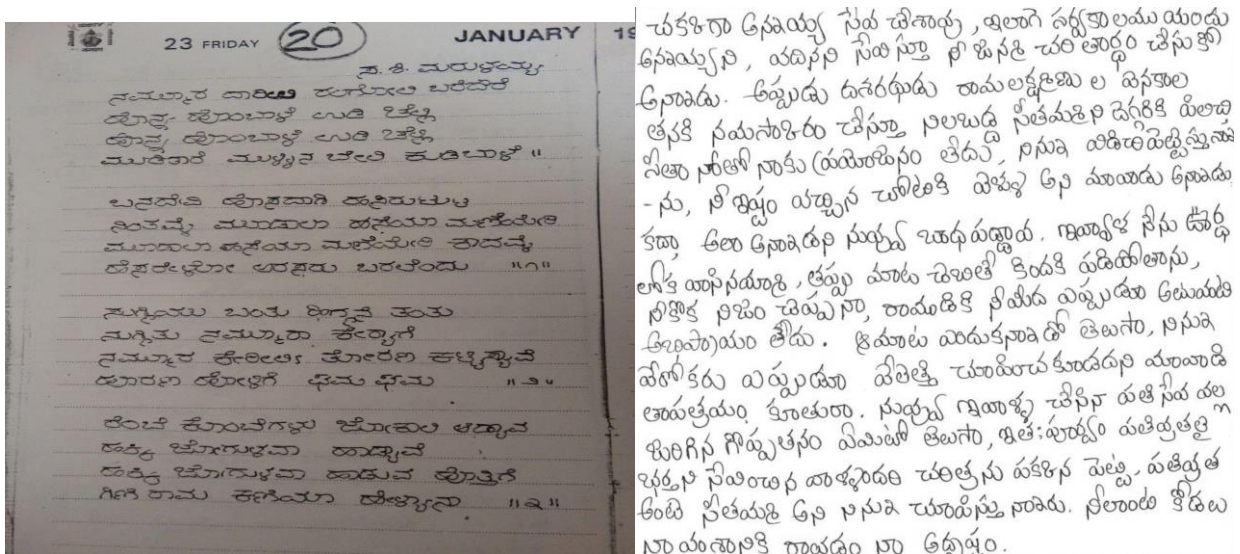 23 FRIDAY 20 JANUARY 19
ಸ. ಶಿ. ಮರುಳಯ್ಯ
ನಮ್ಮೂರ ದಾರೀಲಿ ರಂಗೋಲಿ ಬರೆದರೆ
ಹೊನ್ನ ಹೊಂಬಾಳೆ ಉಡಿ
ಹೊನ್ನ ಹೊಂಬಾಳೆ ಉಡಿ
ಮುಡಿತಾರೆ ಮುಳ್ಳಿನ ಬೇಲಿ ಕುಡಿಬಾಳೆ ॥
ಬನದೇವಿ ಹೊಸದಾಗಿ ಹಸಿರುಟ್ಟು
ನಿಂತವ್ಳೆ ಮೂಡಾಲಾ ಹಸೆಯಾ ಮಣೆಯೇರಿ
ಮೂಡಾಲಾ ಹಸೆಯಾ ಮಣೆಯೇರಿ ಕಾದವ್ಳೆ
ಹೆಸರೇಳೋ ಅರಸರು ಬರಲೆಂದು ॥೧॥
ಸುಗ್ಗಿಯು ಬಂತು ಹಿಗ್ಗನೆ ತಂತು
ನುಗ್ಗಿತು ನಮ್ಮೂರಾ ಕೇರ್ಯಾಗೆ
ನಮ್ಮೂರ ಕೇರೀಲಿ ತೋರಣ ಕಟ್ಟಿಸ್ಯಾವೆ
ಹೂರಣ ಹೋಳಿಗೆ ಘಮ ಘಮ ॥೨॥
ರೆಂಬೆ ಕೊಂಬೆಗಳು ಜೋಕಾಲಿ ಆಡ್ಯಾವ
ಹಕ್ಕಿ ಜೋಗುಳವಾ ಹಾಡ್ಯಾವೆ
ಹಕ್ಕಿ ಜೋಗುಳವಾ ಹಾಡುವ ಹೊತ್ತಿಗೆ
ಗಿಣಿ ರಾಮ ಕಣಿಯಾ ಹೇಳ್ಯಾನಾ ॥೩॥
చకకగా అన్నయ్య సేవ చేశావు, ఇలాగే సర్వకాలము యందు
అన్నయ్యని, వదినని సేవిస్తూ నీ జన్మని చరితార్థం చేసుకో
అన్నాడు. అప్పుడు దశరథుడు రామలక్ష్మణు ల వెనకాల
తనకి నమస్కారం చేస్తూ నిలబడ్డ సీతమ్మని దెగ్గరికి పిలిచి
సీతా నీతో నాకు ప్రయోజనం లేదు, నిను విడిచిపెట్టేస్తున్నా
-ను, నీ ఇష్టం వచ్చిన చోటికి వెళ్ళు అని మావాడు అన్నాడు
కదా, అలా అన్నాడని నువ్వు బాధ పడ్డావా. ఇవ్వాళ నేను ఊర్ధ్వ
లోక వాసినయ్యాను, తప్పు మాట చెబితే కిందకి పడిపోతాను,
నీకొక నిజం చెప్పనా, రాముడికి నీమీద ఎప్పుడూ అటువంటి
అభిప్రాయం లేదు. ఆమాట ఎందుకన్నాడో తెలుసా, నినున్న
వేరోకరు ఎప్పుడూ వేలెత్తి చూపించకూడదని మావాడి
తాపత్రయం కూతురా. నువ్వు ఇవాళ్ళ చేసిన పతి సేవ వల్ల
జరిగిన గొప్పతనం ఏమిటో తెలుసా, ఇతఃపూర్వం పతివ్రతలై
భర్తని సేవించిన వాళ్ళందరి చరిత్రను పకకన పెట్టి, పతివ్రత
అంటే సీతయమ్మ అని నినున్న చూపిస్తు న్నారు. నీలాంటి కోడలు
నా వంశానికి రావడం నా అదృష్టం.